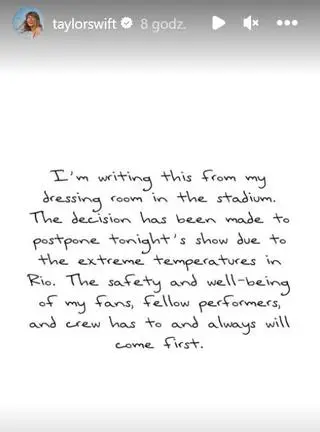 taylorswift 8 godz.
I'm writing this from my
dressing room in the stadium.
The decision has been made to
postpone tonight's show due to
the extreme temperatures in
Rio. The safety and well-being
of my fans, fellow performers,
and crew has to and always will
come first.